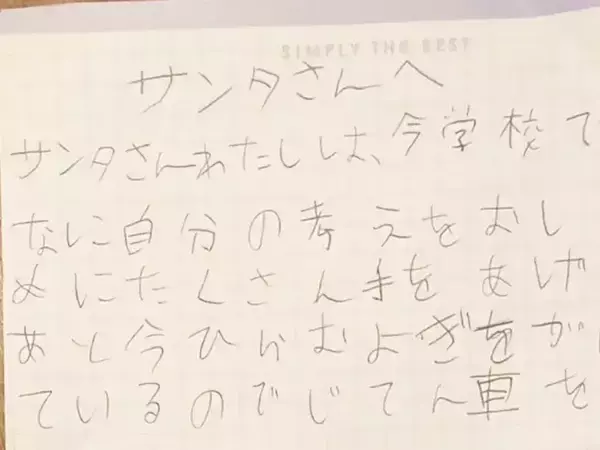 SIMPLY THE BEST
サンタさんへ
サンタさんわたしは、今学校で
なに自分の考えをおし
めにたくさん手をあげ
あと今ひらむよぎをが
ているのでじてん車を